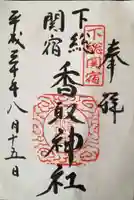 奉拝
下総
関宿
香取神社
下総関宿
平成三十年八月十五日